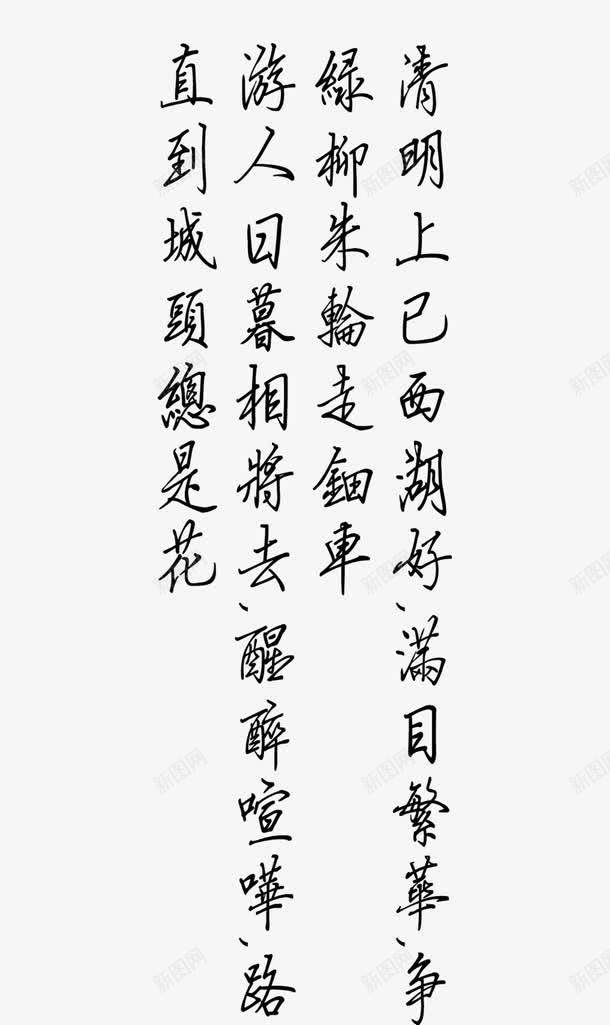 清明上已西湖好、滿目繁華、争
緑柳朱輪走鈿車
游人日暮相將去、醒醉喧嘩、路
直到城頭總是花